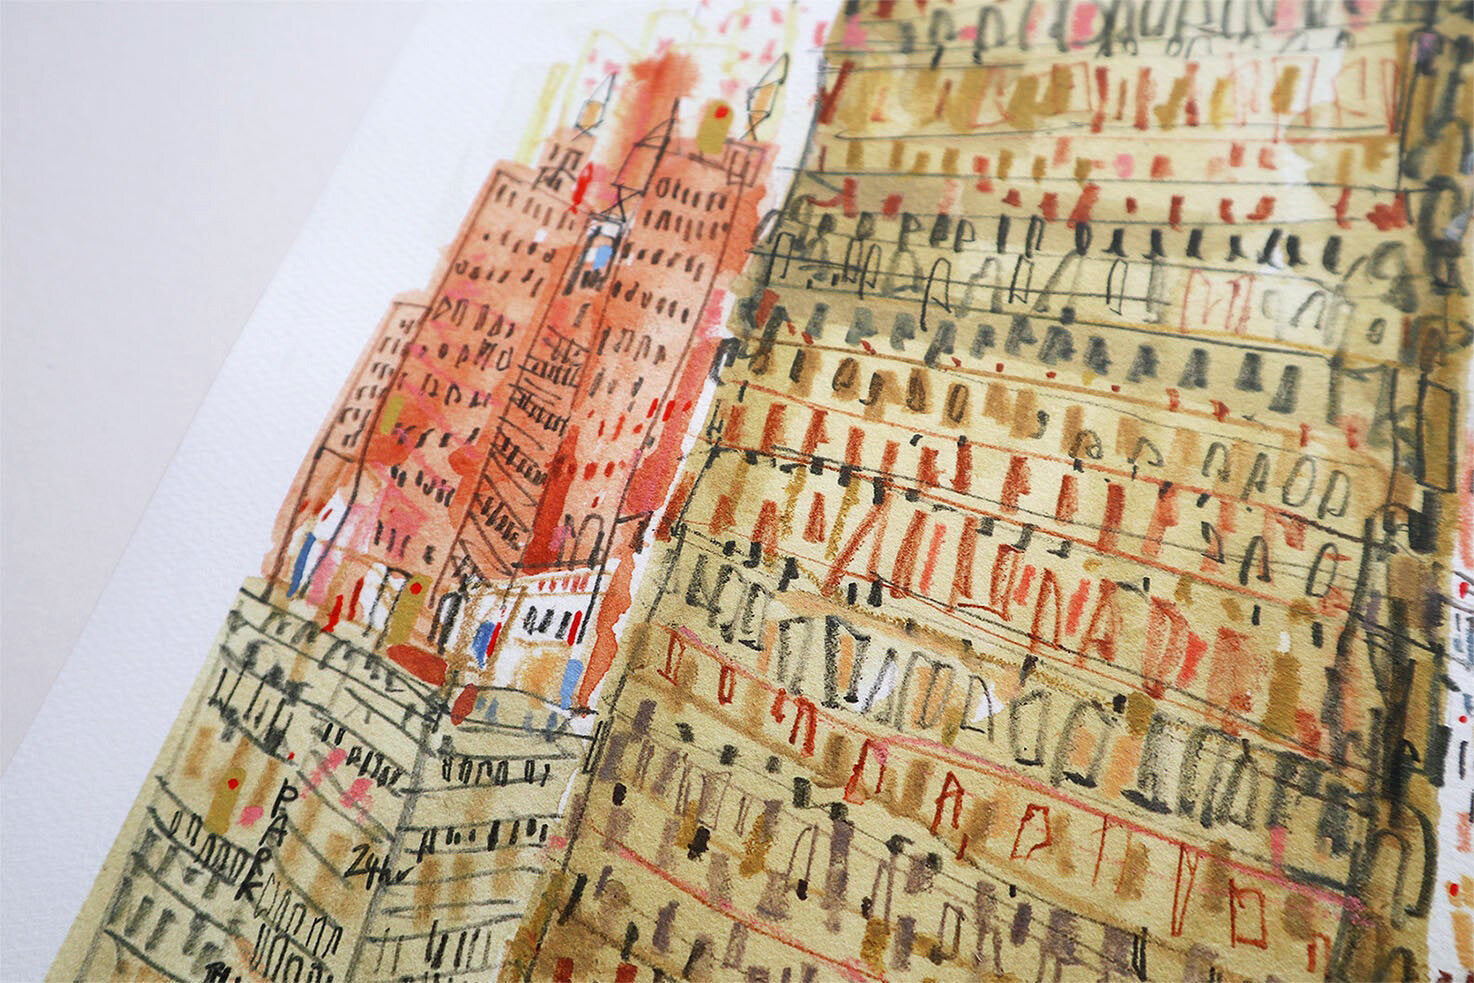 PARK
24hr